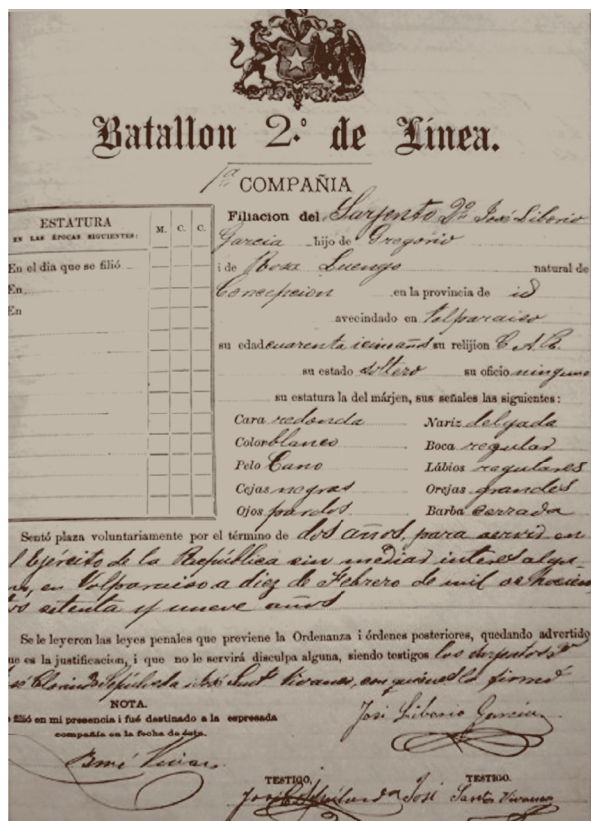 Batallon 2º de Línea.
1ª COMPAÑIA
ESTATURA
EN LAS ÉPOCAS SIGUIENTES:
M. C. C.
En el dia que se filió
En
En
Filiacion del Sarjento 2º José Liborio
Garcia hijo de Gregorio
i de Rosa Luengo natural de
Concepcion en la provincia de id
avecindado en Valparaiso
su edad cuarenta i años su relijion C. A. R.
su estado soltero su oficio ninguno
su estatura la del márjen, sus señales las siguientes:
Cara redonda Nariz delgada
Color blanco Boca regular
Pelo Cano Lábios regulares
Cejas negras Orejas grandes
Ojos pardos Barba cerrada
Sentó plaza voluntariamente por el término de dos años, para servir en
l Ejército de la República sin mediar interes algu-
no, en Valparaiso a diez de Febrero de mil ochocien
tos setenta y nueve años
Se le leyeron las leyes penales que previene la Ordenanza i órdenes posteriores, quedando advertido
ue es la justificacion, i que no le servirá disculpa alguna, siendo testigos los
Vivanco, con quienes lo firmó
NOTA.
filió en mi presencia i fué destinado a la espresada
compañia en la fecha de ésta.
José Liborio Garcia
TESTIGO, TESTIGO.
José Santos Vivanco